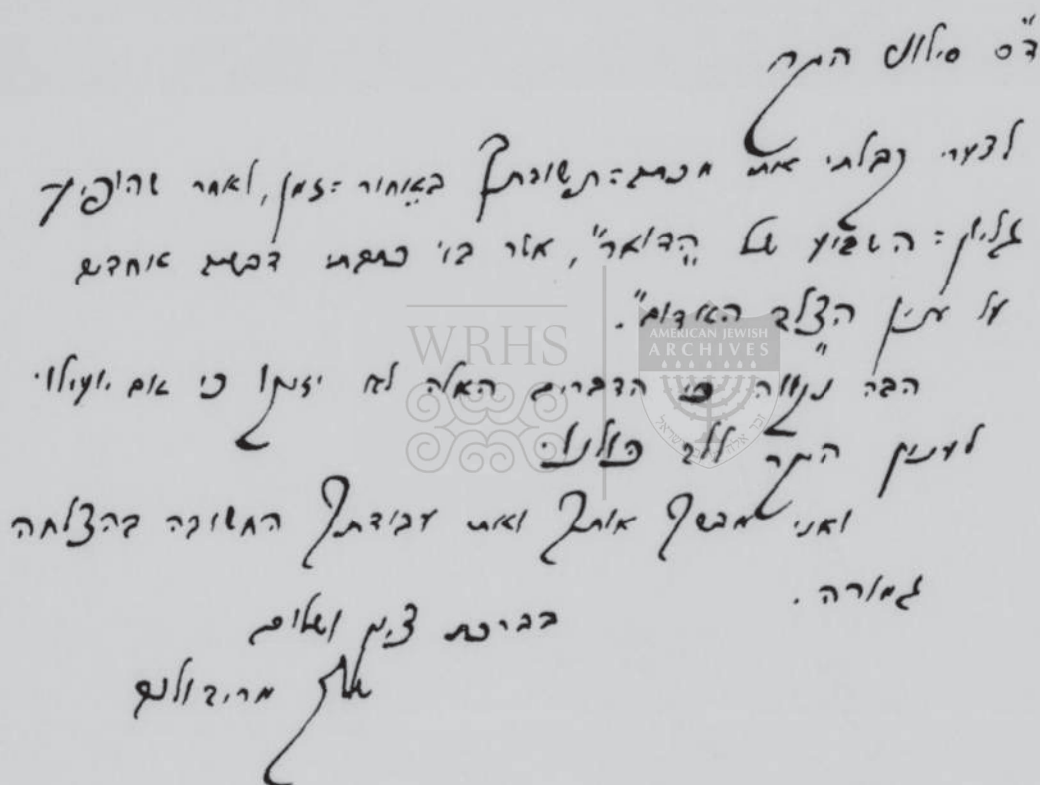 ד"ס סילווע היקר
לצערי קבלתי את מכתב=תשובתך באחור=זמן, לאחר שהופיע
גליון=השבוע של "הדואר", אשר בו כתבתי דברים אחדים
על ענין הצלב האדום".
הבה נקוה כי הדברים האלה לא יזיקו כי אם יועילו
לענין היקר ללב כולנו.
ואני מברך אותך ואת עבודתך החשובה בהצלחה
גמורה.
בברכת ציון ושלום
WRHS
AMERICAN JEWISH
ARCHIVES